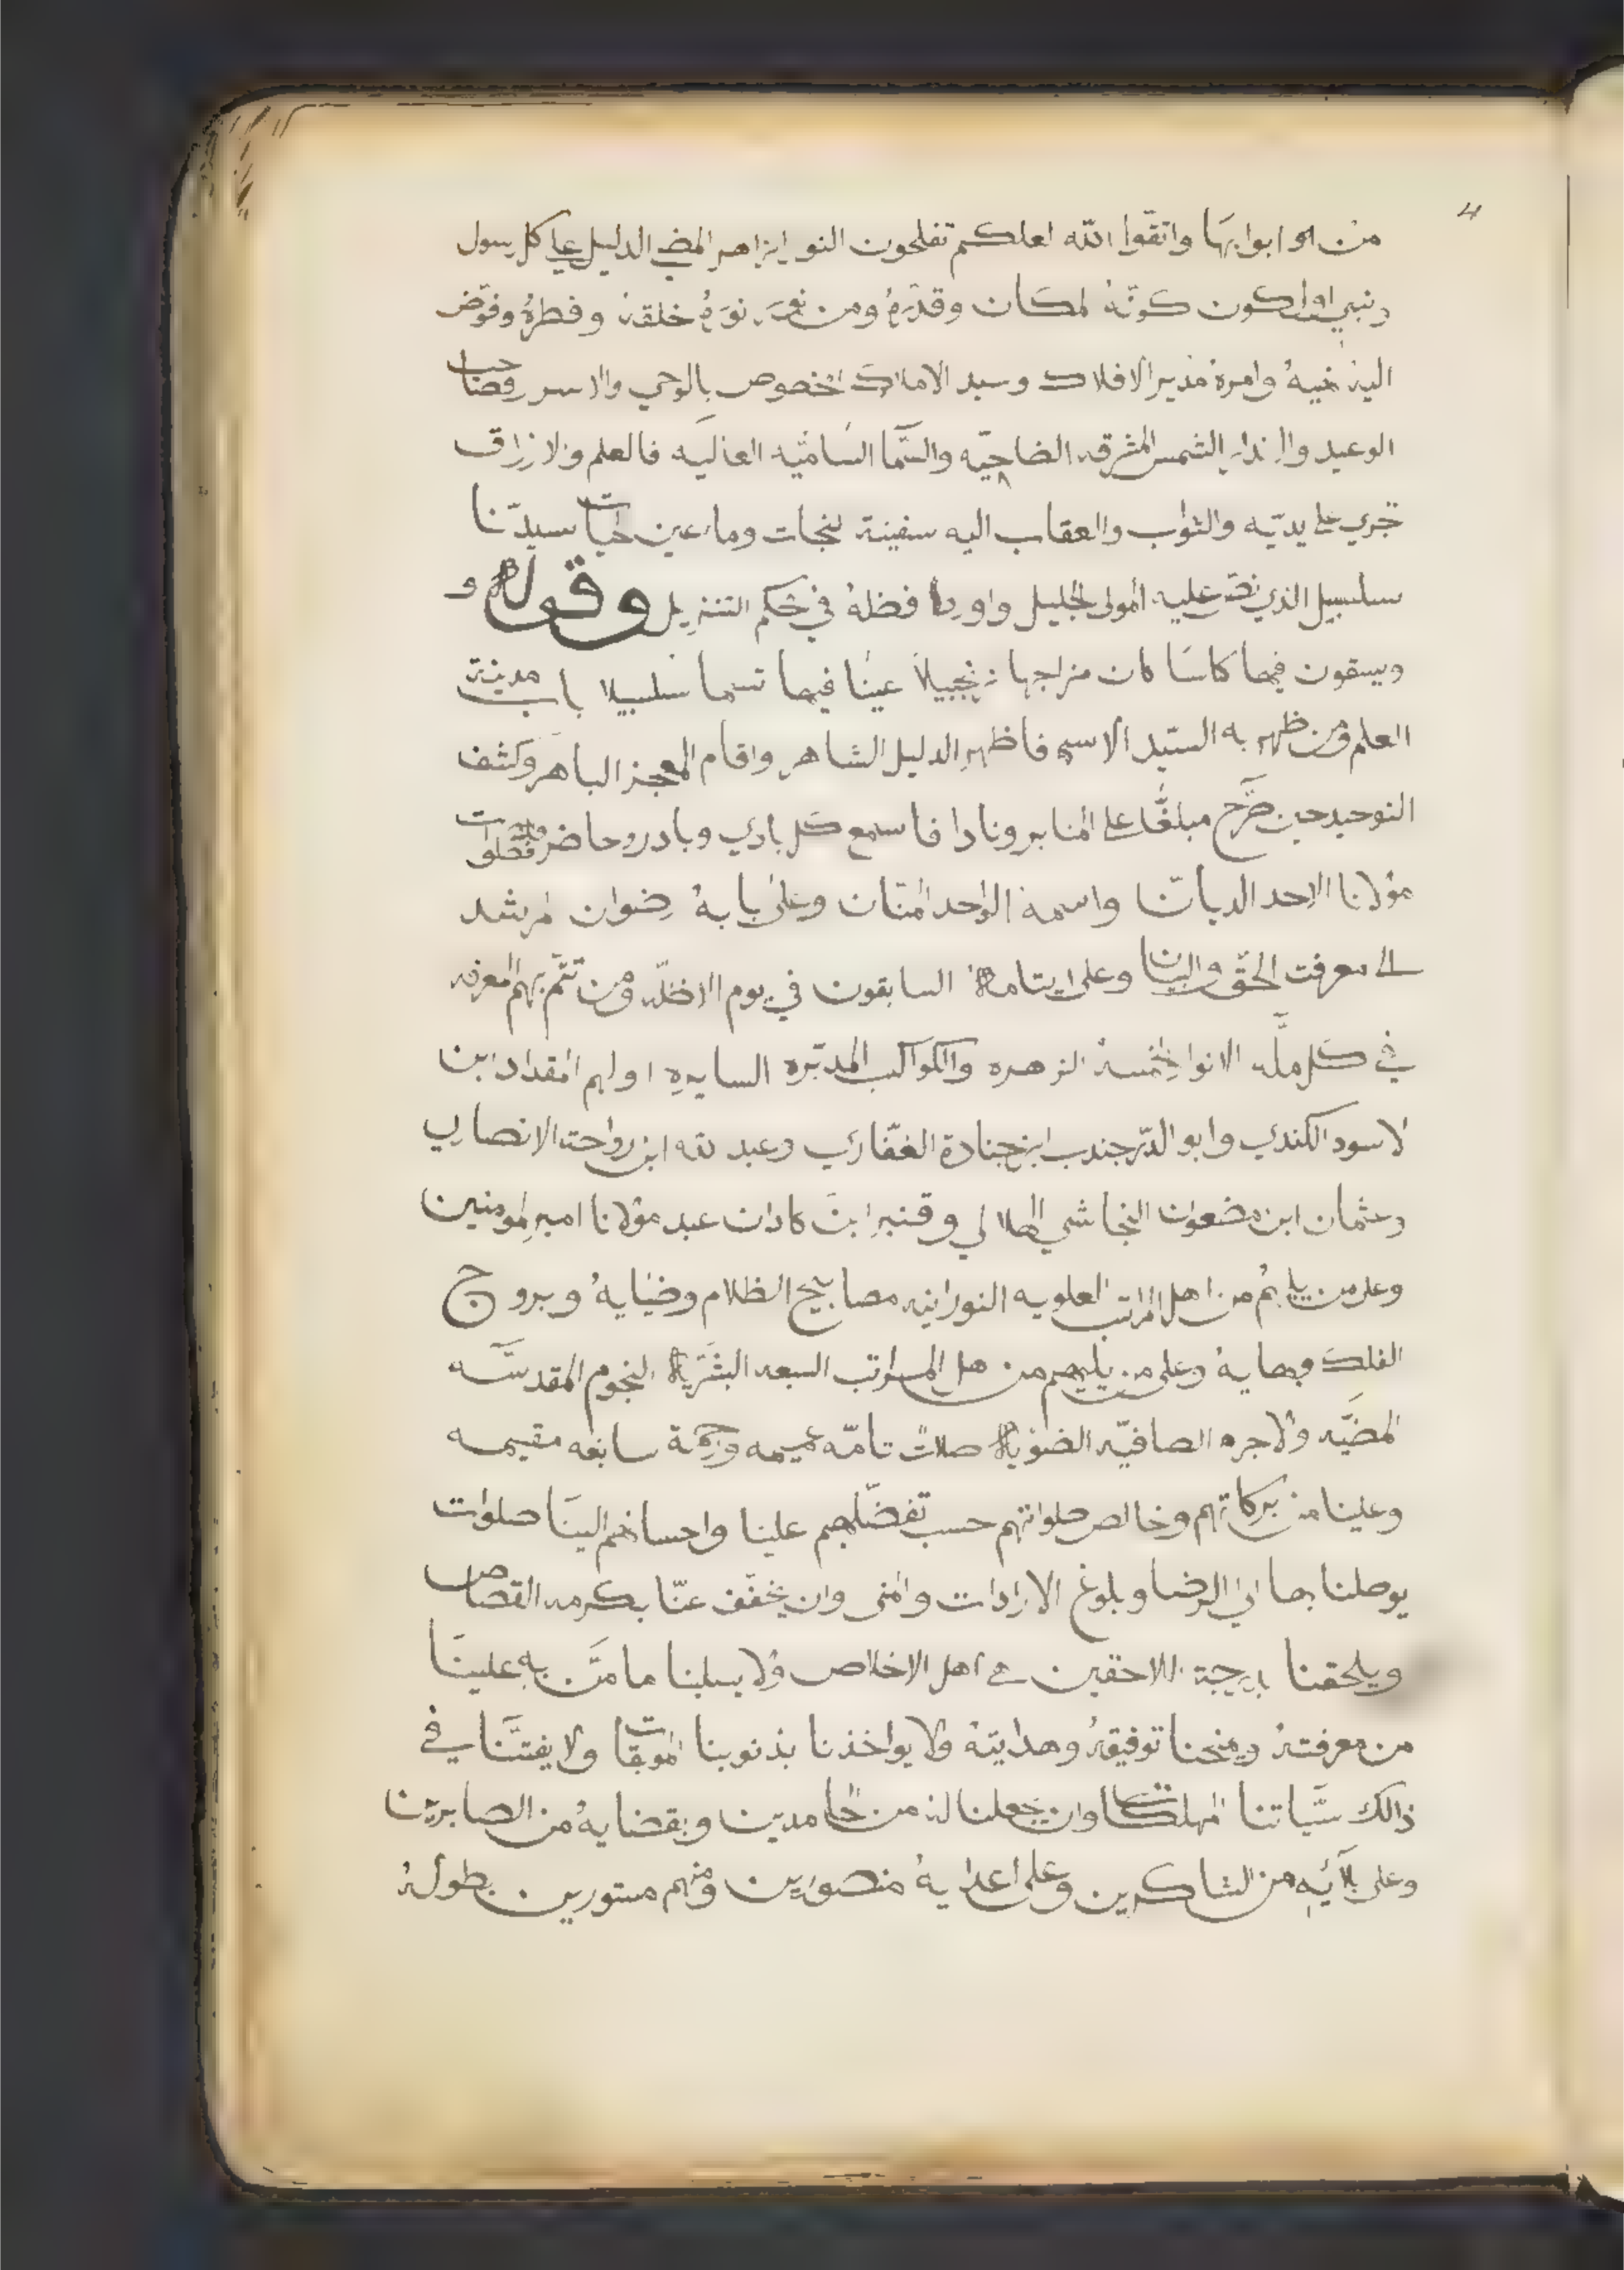 4
من ابوابها واتقّوا الله لعلكم تفلحون النور الزاهر المضي الدليل على كل رسول
ونبي اول كون كونّهُ لمكان وقدّرهُ ومن نور نورهُ خلقهُ وفطرهُ وفوّض
اليه نهيهُ وامرهُ مدير الافلاك وسيد الاملاك المخصوص بالوحي والاسر وصاحب
الوعيد والانذار الشمس المشرقه الضاحيّه والسّما السّاميّه العاليه فالعلم والارزاق
تجري على يديّه والثواب والعقاب اليه سفينة لنجات وماء عين الحيات سيدّنا
سلسبيل الذي نصّ عليه المولى الجليل واورد فضلهُ في محكم التنزيل وقوله و
ويسقون فيها كاسًا كان مزاجها زنجبيلًا عينًا فيها تسما سلسبيلا باب مدينة
العلم ومن ظهر به السيّد الاسم فاظهر الدليل الشاهر واقام المعجز الباهر وكشف
التوحيد حين صرّح مبلغًّا على المنابر ونادا فاسمع كل بادي وبادر وحاضر وصلوات
مولانا الاحد الديانّ واسمه الواحد المنّان وعلى بابهُ رضوان المرشد
الى معرفت الحقّ والبيان وعلى ايتامهُ السابقون في يوم الاظلّه ومن تتّم بهم المعرفه
في كل ملّه الانوار الخمسة الزهره والكواكب المدبّره السايره اولهم المقداد ابن
لاسود الكندي وابو الدّر جندب ابن جنادة الغفّاري وعبد لله ابن رواحت الانصاري
وعثمان ابن مضعون النجاشي الهلالي وقنبر ابن كادان عبد مولانا امير لمومنين
وعلى من يليهُم من اهل المراتب العلويه النورانيه مصابيح الظلام وضيايهُ وبروج
الفلك وبهايهُ وعلى من يليهم من هل المراتب السبعه البشريه النجوم المقدسّه
المضيّه والاجره الصافيّه الضوّيه صلاتً تامّه عميمه ورحمة سابغه مقيمه
وعلينا من بركاتهم وخالص صلواتهم حسب تفضّلهم علينا واحسانهم الينا صلوات
يوصلنا بها الى الرضا وبلوغ الارادات والمنى وان يخفّف عنّا بكرمه القصاص
ويلحقنا بدرجة اللاحقين من اهل الاخلاص ولا يسلبنا ما منّ به علينا
من معرفتهُ ويمنحنا توفيقهُ وهدايتهُ ولا يواخذنا بذنوبنا الموبقات ولا يفتنّا في
ذالك سيّاتنا المهلكات وان يجعلنا له من الحامدين وبقضايهُ من الصابرين
وعلى بلآئِه من الشاكرين وعلى اعدايهُ منصورين ومنهم مستورين بطولهُ